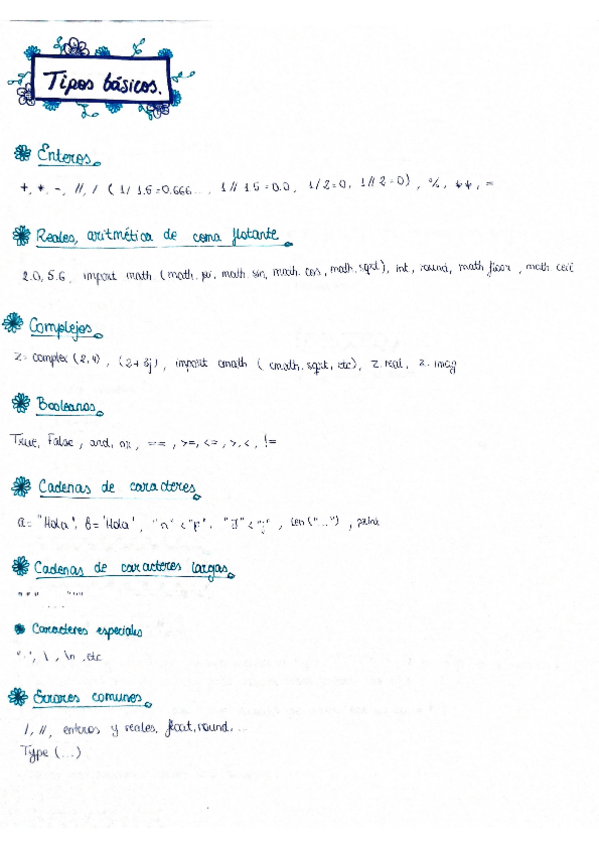 Tipos básicos.
Enteros
+, *, -, //, / ( 1/ 1.5 = 0.666..., 1// 1.5 = 0.0, 1/2 = 0, 1//2 = 0) , %, **, =
Reales, aritmética de coma flotante
2.0, 5.6, import math (math.pi, math.sin, math.cos, math.sqrt), int, round, math floor, math ceil
Complejos
z = complex (2,4) , (2+3j) , import cmath ( cmath.sqrt, etc), z.real, z.imag
Booleanos
True, False, and, or, ==, >=, <=, >, <, !=
Cadenas de caracteres
a = "Hola", b = 'Hola', "n" < , len ("...") , print
Cadenas de caracteres largas
""" """
Caracteres especiales
\, \n, etc
Errores comunes
/, //, enteros y reales, float, round...
Type (...)